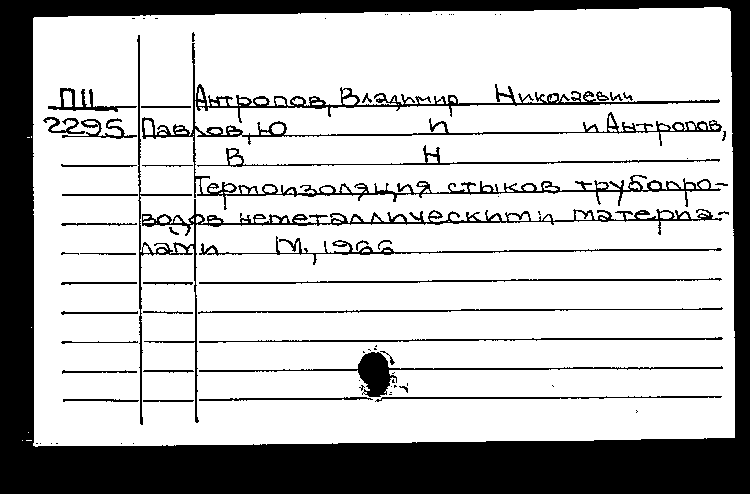 П11 Антропов, Владимир Николаевич
2295 Павлов, Ю П и Антропов,
В Н
Термоизоляция стыков трубопро-
водов неметаллическими материа-
лами М., 1966